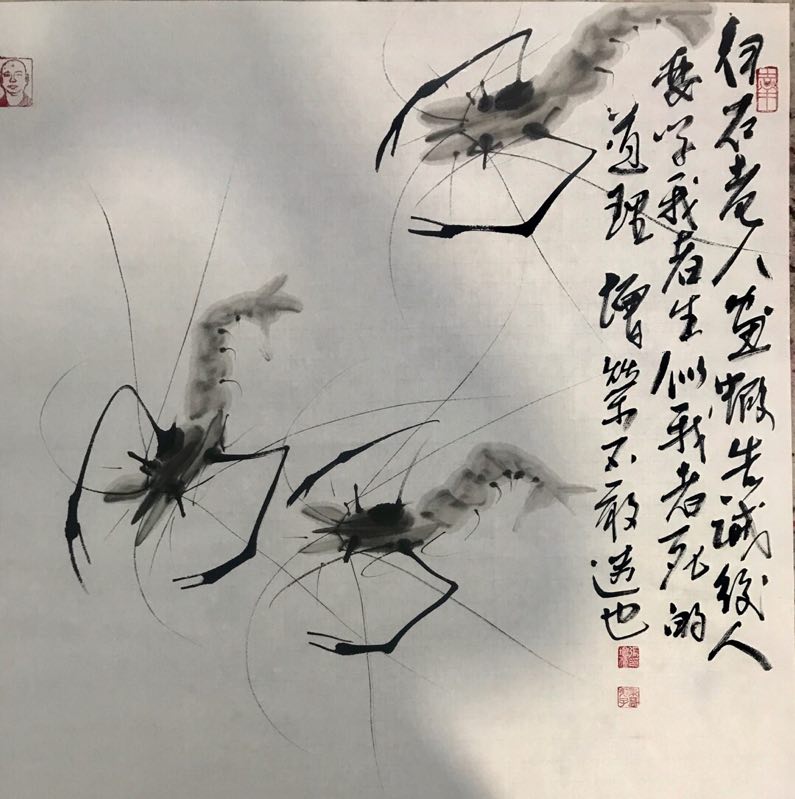 白石老人画虾告诫后人
要学我者生似我者死的
道理 增荣不敢造也